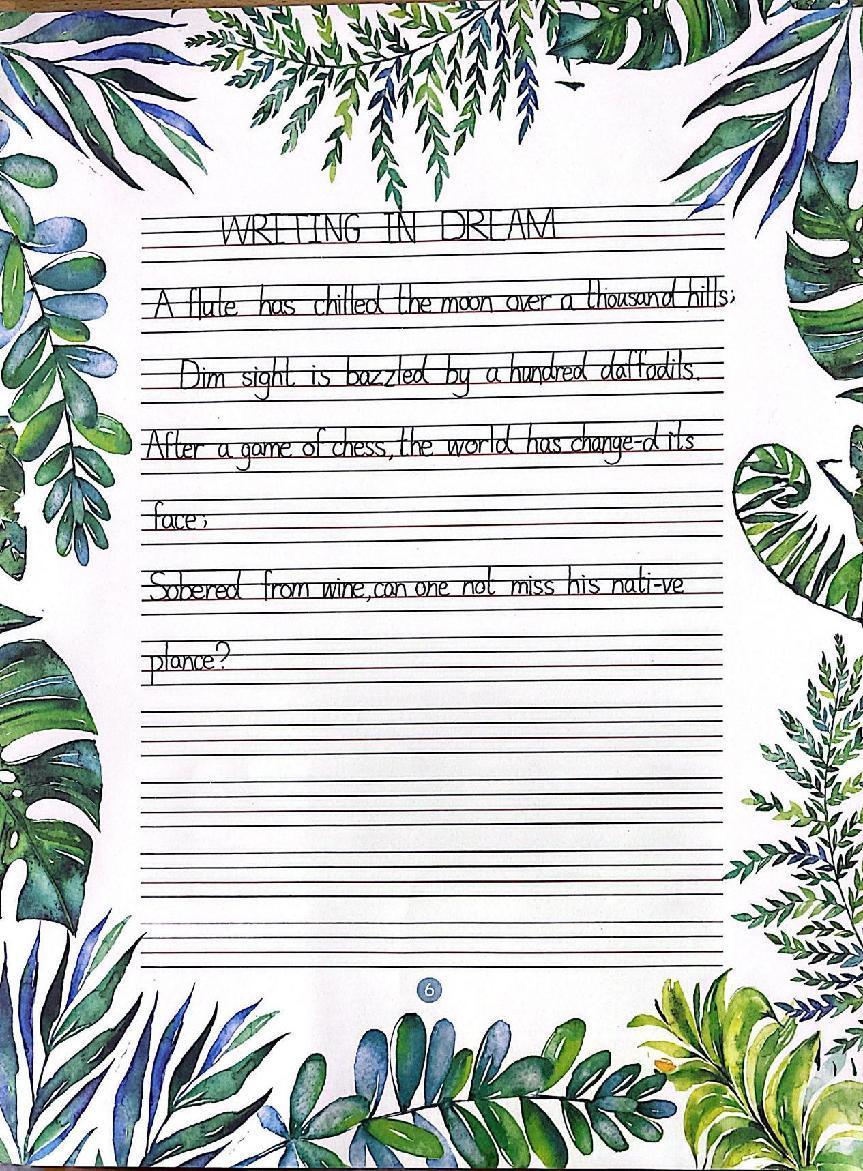 WRITING IN DREAM
A flute has chilled the moon over a thousand hills;
Dim sight is bazzled by a hundred daffodils.
After a game of chess, the world has change-d its
face;
Sobered from wine, can one not miss his nati-ve
plance?
6